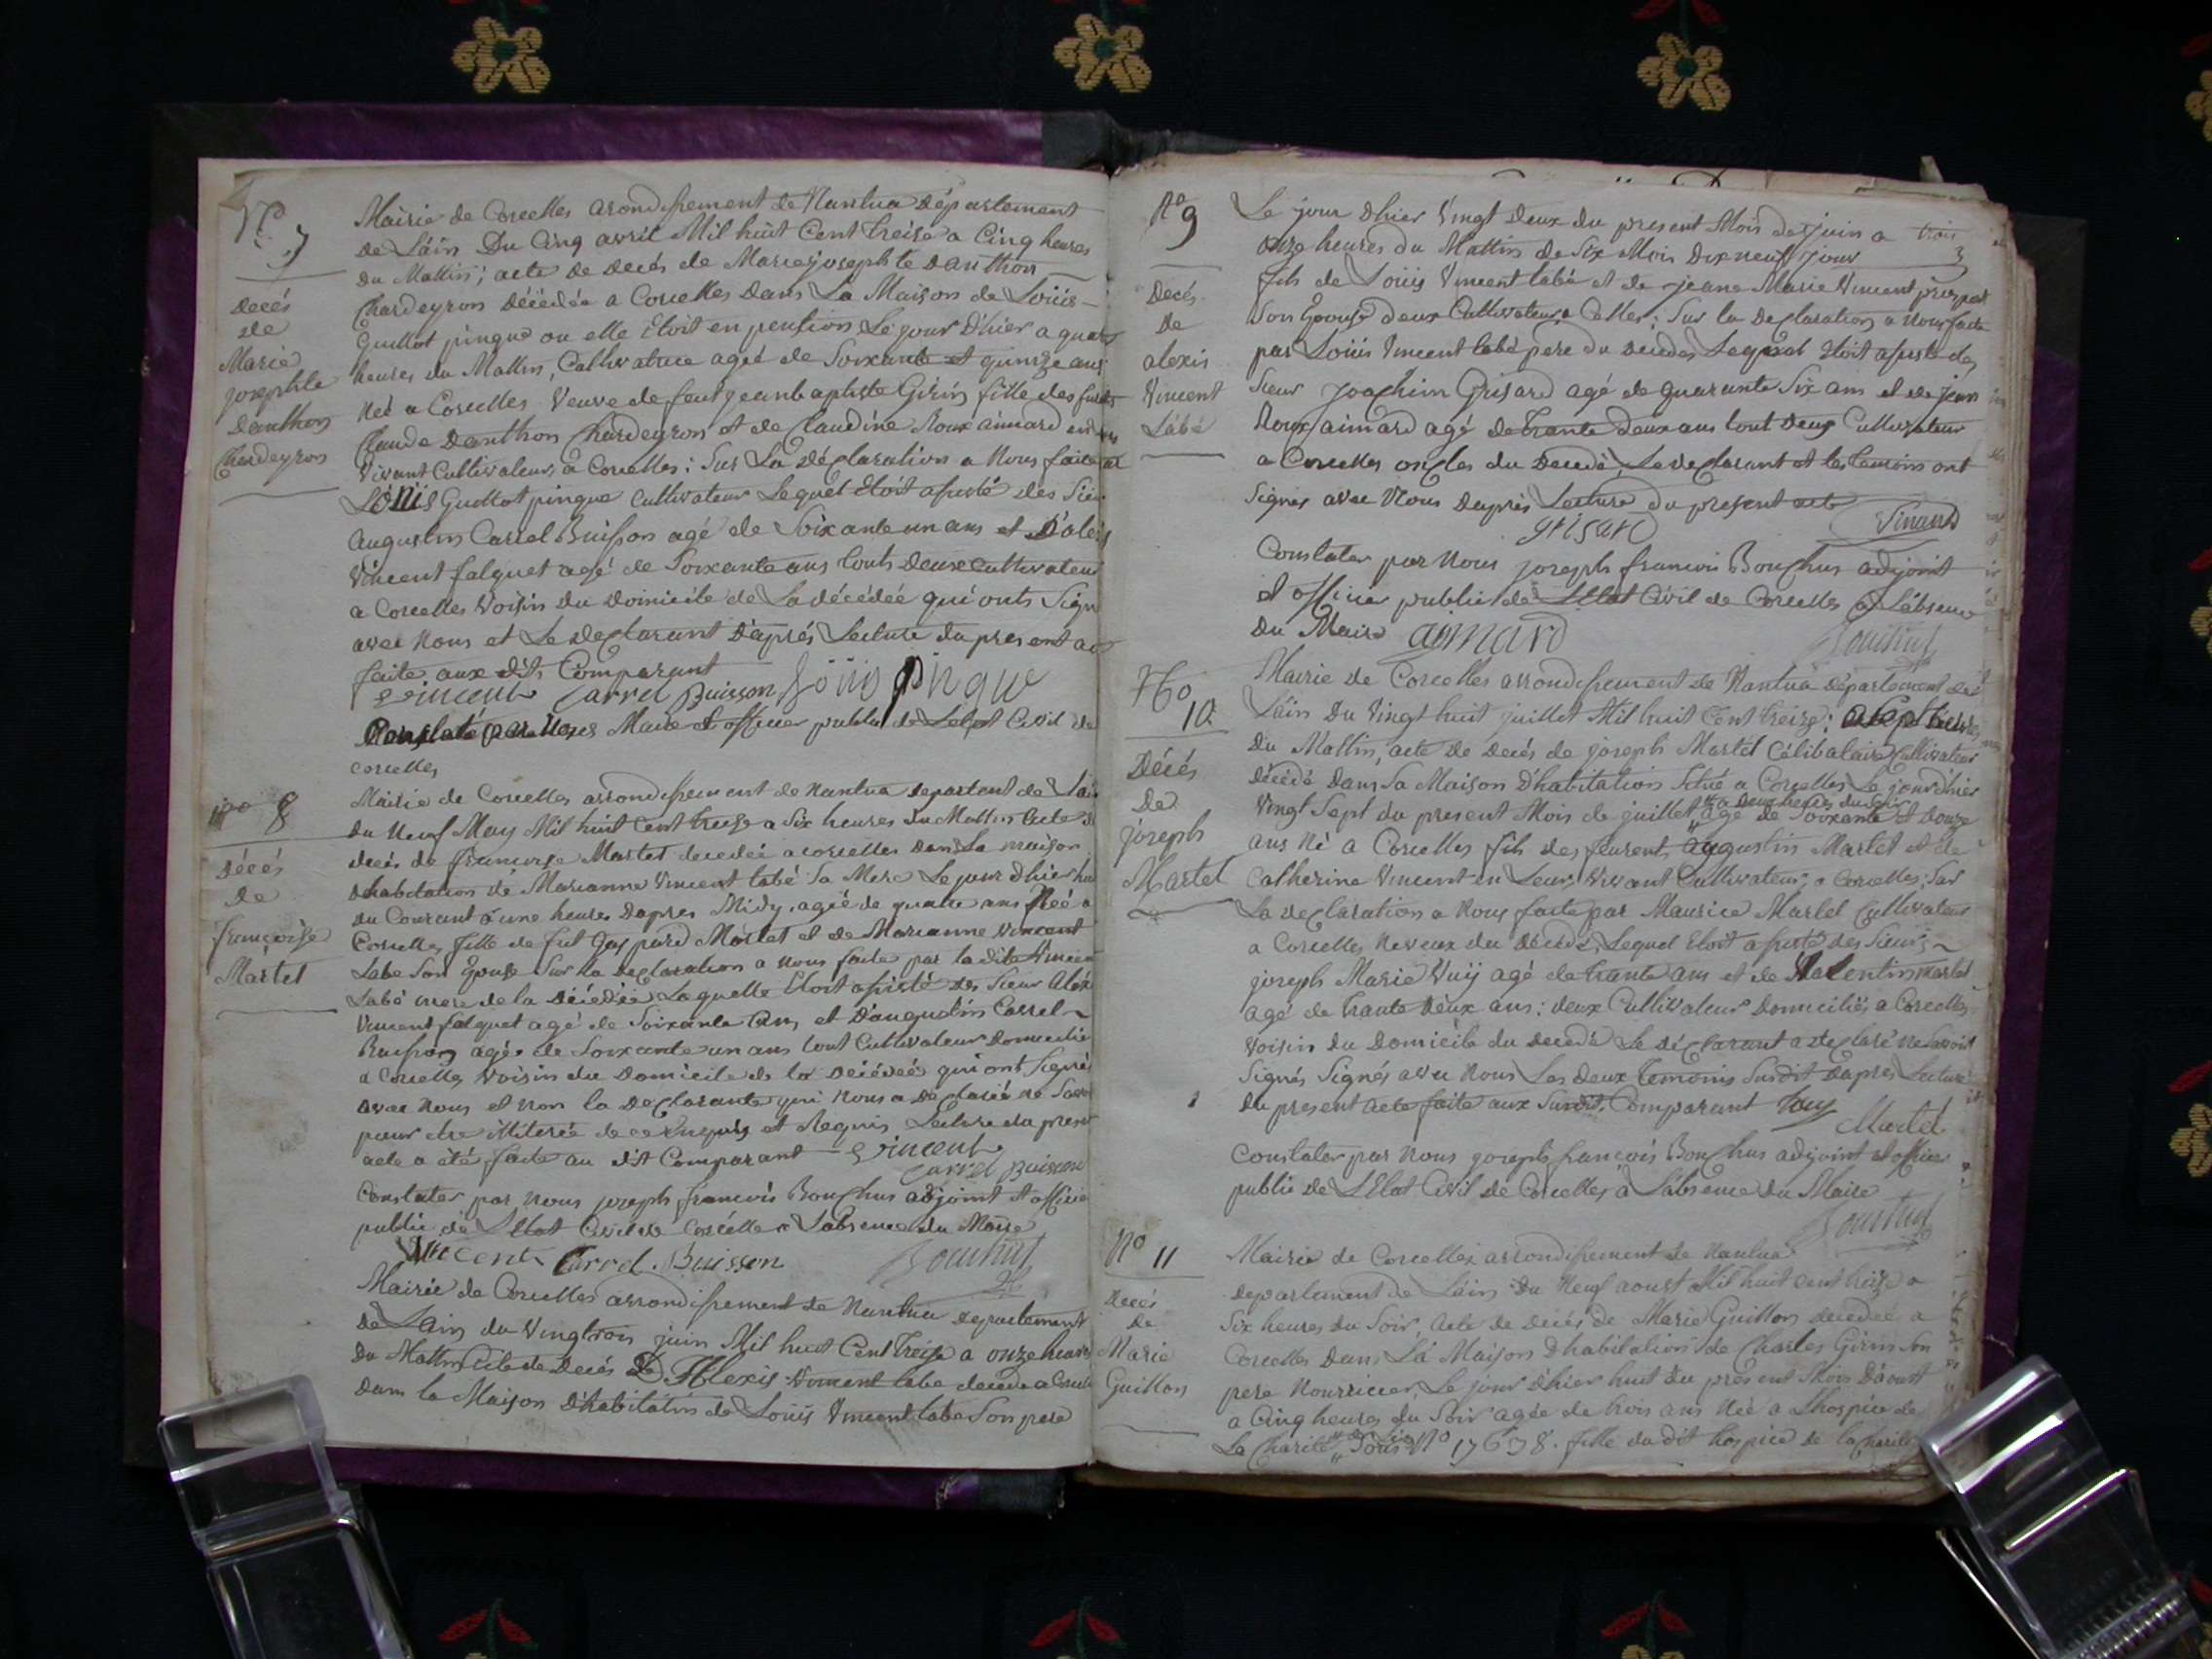 N° 7
Decés
de
Marie
josephte
Danthon
Chardeyron
Mairie de Corcelles arondissement de Nantua Département
de Láin Du Cinq avril Mil huit Cent treize a Cinq heures
Du Mattin; acte de Decés de Marie josephte Danthon
Chardeyron Décédée a Corcelles Dans La Maison de Loüis
Guillot pingue ou elle Etoit en pention Le jour D'hier a
heures du Mattin, Cultivatrice ageé de Soixante et quinze ans
Neé a Corcelles Veuve de feut jean baptiste Girin fille des
Claude Danthon Chardeyron et de Claudine Roux aimard
Vivant Cultivateur à Corcelles: Sur La Déclaration a Nous faite
Loüis Guillot pingue Cultivateur Lequel Etoit assisté des
augustin Carrel Buisson agé de Soixante un ans et
Vincent falquet agé de Soixante ans touts Deux Cultivateur
a Corcelles Voisin Du Domicile de La décédeé qui onts
avec Nous et Le Declarant D'aprés Lecture du present
faite aux dits Comparant
vincent Carrel Buisson Loüis pingue
Constate par Nous Maire et officier public de Letat Civil de
corcelles
N° 8
Décés
de
françoise
Martet
Mairie de Corcelles arrondissement de Nantua
du Neuf May Mil huit Cent treize a Six heures du Mattin Acte
decés de françoise Martet decedeé a corcelles Dans La maison
Dhabitation de Marianne Vincent labé Sa Mere Le jour dhier
du Courant à une heures Dapres Midy, ageé de quatre ans Neé a
Corcelles fille de fut Gaspard Martet et de Marianne Vincent
Labe Son Epouse Sur la Declaration a Nous faite par la dite
Labé mere de la Décédée Laquelle Etoit assisté des Sieur
Vincent falquet agé de Soixante ans et D'augustin Carrel
Buisson agée de Soixante un ans tout Cultivateur
a Corcelles Voisin du Domicile de la Décédeé qui ont Signé
avec Nous et Non la Declarante qui Nous a Déclareé ne
pour etre illiterée de ce Enquis et Requis Lecture du
acte a été faite au dit Comparant vincent
Carrel Buisson
Constater par Nous joseph francois Bouchus adjoint et
public de Letat Civil de Corcelle a Labsence du Maire
Vincent Carrel Buisson Bouchus
Mairie de Corcelles arrondissement de Nantua departement
de Lain du Vingt trois juin Mil huit Cent Treize a onze heures
Du Mattin acte de Decés De Alexis Vincent labe decede a
Dans la Maison D'habitation de Loüis Vincent labe Son pere
N° 9
Decés
De
alexis
Vincent
Lábé
Le jour Dhier Vingt Deux du present Mois de juin a
onze heures du Mattin de Six Mois Dix neuf jour 3
fils de Loüis Vincent labé et de jeane Marie Vincent
Son Epouse deux Cultivateur a Celles: Sur la Declaration a Nous faite
par Loüis Vincent labé pere du decedes Lequel Etoit assisté des
Sieur Joachim Grisard agé de quarante Six ans et de jean
Roux aimard agé de trante Deux ans tout Deux Cultivateur
a Corcelles oncles du Decedé, Le declarant et les temoins ont
Signés avec Nous Daprès Lecture du present acte
grisard
Constater par Nous joseph francois Bouchus adjoint
et officier public de Letat Civil de Corcelles a Labsence
Du Maire aimard Bouchus
N° 10
Décés
De
joseph
Martet
Mairie de Corcelles arrondissement de Nantua département de
Láin Du Vingt huit juillet Mil huit Cent treize: a sept heures
Du Mattin, acte de decés de joseph Martet Célibataire Cultivateur
décédé Dans Sa Maison D'habitation Situé a Corcelles Le jour dhier
a Deux heures du Soir
Vingt Sept du present Mois de juillet, agé de Soixante et Douze
ans Né a Corcelles fils des feurent augustin Martet et de
Catherine Vincent en Leur Vivant Cultivateur a Corcelles; Sur
La Declaration a Nous faite par Maurice Martet Cultivateur
a Corcelles Neveux du décédé, Lequel Etoit assisté des Sieurs
joseph Marie Vuÿ agé de trante ans et de Valentin Martet
agé de trante Deux ans: deux Cultivateur Domiciliés a Corcelles
Voisin du Domicile du decedé Le déclarant a déclaré ne Savoir
Signés Signés avec Nous Les deux temonis Susdit Daprès Lecture
du present acte faite aux Susdit Comparant Vuÿ
Martet
Constater par Nous joseph francois Bouchus adjoint et officier
public de Letat Civil de Corcelles à Labsence du Maire
Bouchus
N° 11
Decés
de
Marie
Guillon
Mairie de Corcelles arrondissement de Nantua
departement de Láin Du Neuf aoust Mil huit cent treize a
Six heures du Soir, acte de Decés de Marie Guillon decedeé a
Corcelles Dans Lá Maison Dhabitation de Charles Girin Son
pere Nourricier, Le jour Dhier huit du présent Mois Dáoust
a Cinq heures du Soir ageé de trois ans Neé a Lhospice de
La Charité N° 17678. fille du dit hospice de la Charité